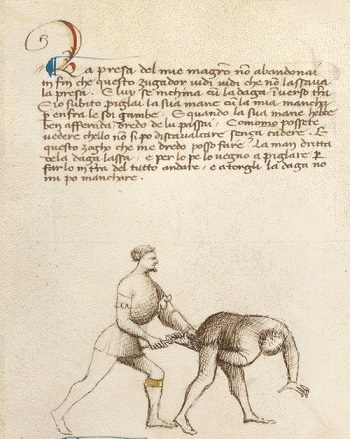 La presa del mie magrõ nõ abandonai
in fin che questo zugador vidi vidi che nõ lassava
la presa. E luy se inchina cũ la daga in verso tr̃a
E io subito pigliai la sua mane cũ la mia mancha
p enfra le soi gambe. E quando la sua mane hebbe
ben afferrada dredo de lu passai. Como mo possete
vedere chello nõ si po discavalcare senza cadere. E
questo zogho che me dredo posso fare. La man dritta
dela daga lassa. e per lo pe lo vegno a piglare p
farlo in tr̃a del tutto andare. e a torgli la daga nõ
mi po manchare.